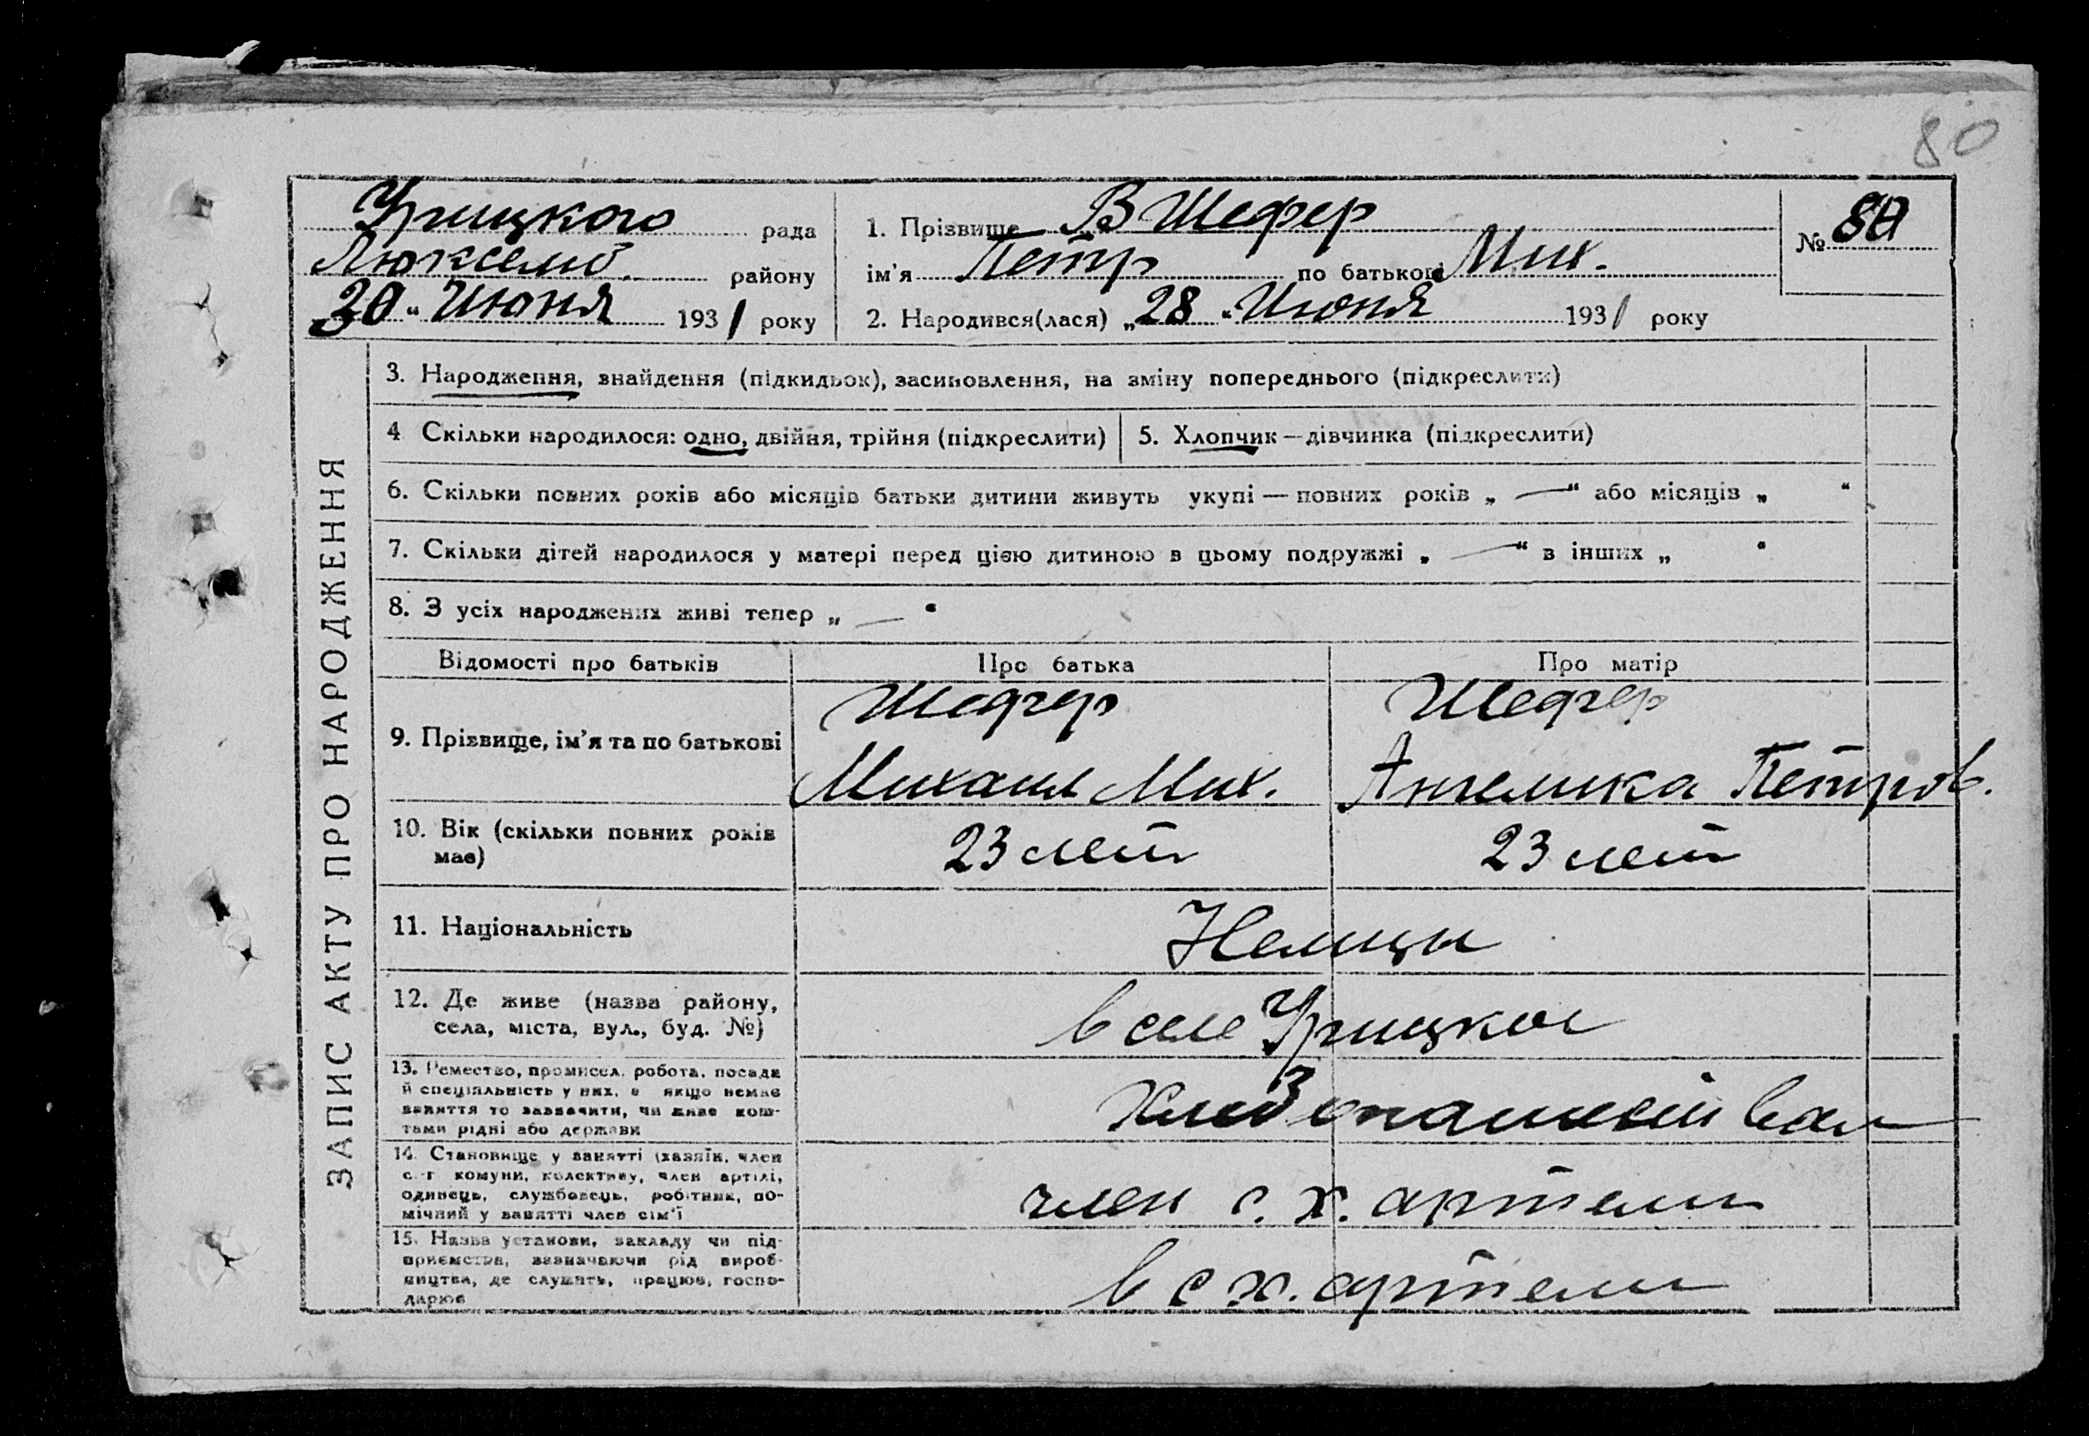 80
Урицкого рада
Люксемб. району
30 " Июня 1931 року
1. Прізвище Шефер
ім'я Петр по батькові Мих.
2. Народився(лася) „28 " Июня 1931 року
№ 80
ЗАПИС АКТУ ПРО НАРОДЖЕННЯ
3. Народження, знайдення (підкидьок), засиновлення, на зміну попереднього (підкреслити)
4 Скільки народилося: одно, двійня, трійня (підкреслити)
5. Хлопчик — дівчинка (підкреслити)
6. Скільки повних років або місяців батьки дитини живуть укупі — повних років „ — " або місяців „ "
7. Скільки дітей народилося у матері перед цією дитиною в цьому подружжі „ — " в інших „ "
8. З усіх народжених живі тепер „ — "
Відомості про батьків Про батька Про матір
9. Прізвище, ім'я та по батькові
Шефер Шефер
Михаил Мих. Ангелика Петров.
10. Вік (скільки повних років має)
23 лет 23 лет
11. Національність
Немцы
12. Де живе (назва району,
села, міста, вул., буд. №)
в селе Урицкое
13. Ремество, промисел, робота, посада
й спеціальність у них, а якщо немає
заняття то зазначити, чи живе кош-
тами рідні або держави
14. Становище у занятті (хазяїн, член
с.-г комуни, колективу, член артілі,
одинець, службовець, робітник, по-
мічний у занятті член сім'ї
член с. х. артели
15. Назва установи, закладу чи під-
приємства, зазначаючи рід вироб-
ництва, де служить, працює, госпо-
дарює
в с х. артели